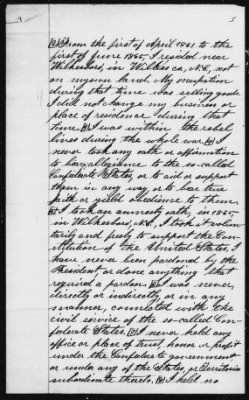 3
From the first of April 1861 to the
first of June 1865, I resided near
Wilkesboro, in Wilkes co, N.C., not
on my own land. My occupation
during that time was selling goods
I did not change my business or
place of residence during that
time. I was within the rebel
lines during the whole war.
never took any oath or affirmation
to bear allegiance to the so-called
Confederate States, or to aid or support
them in any way, or to bear true
faith or yield obedience to them.
I took an amnesty oath, in 1865,
in Wilkesboro, N.C., I took it volun
tarily and freely to support the Con-
stitution of the United States, I
have never been pardoned by the
President or done anything that
required a pardon. I was never,
directly or indirectly, or in any
manner, connected with the
civil service of the so-called Con-
federate States. I never held any
office or place of trust, honor or profit
under the Confederate government
or under any of the States, or Territories
subordinate thereto. I held no